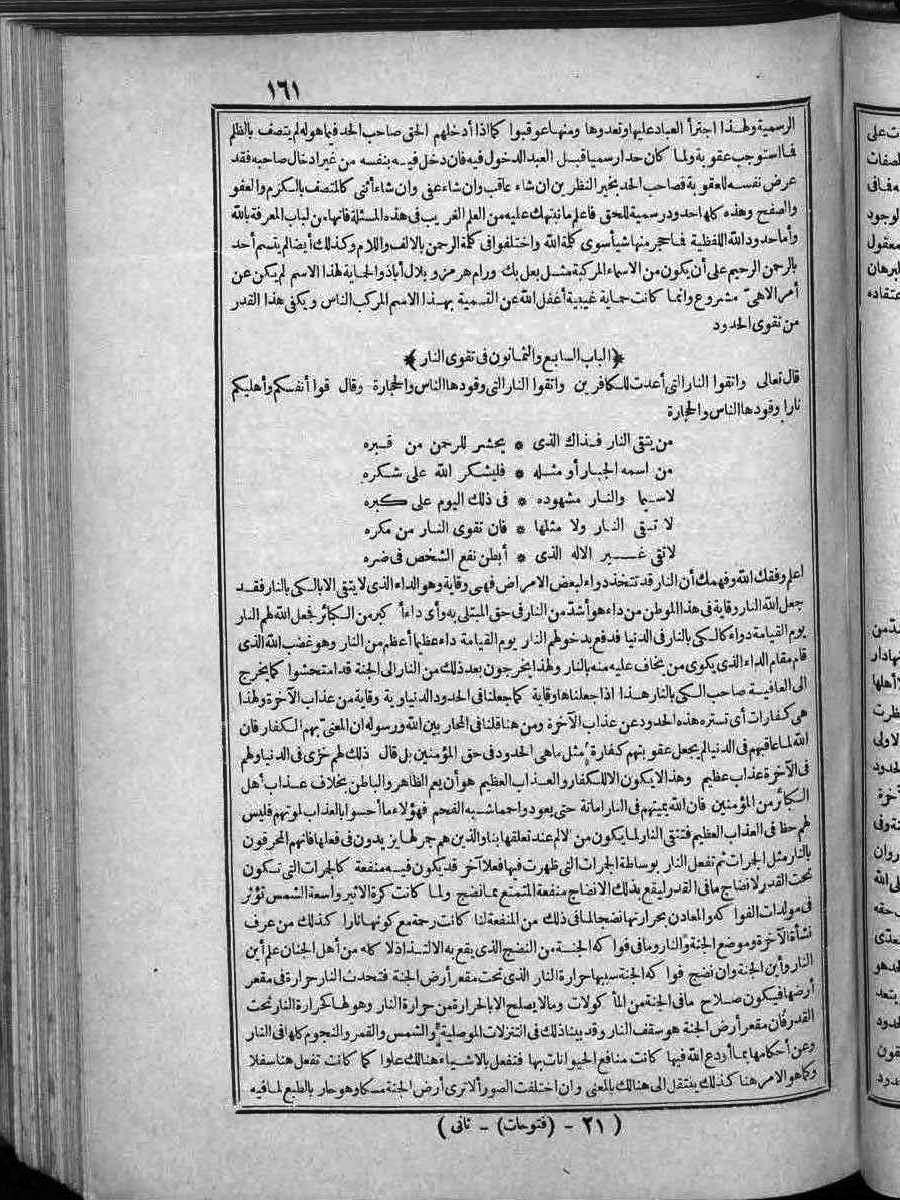 ١٦١
الرسمية ولهذا اجترأ العباد عليها وتعدوها ومنها عوقبوا كما اذا أدخلهم الحق صاحب الحد فيما هو له لم يتصف بالظلم
فما استوجب عقوبة ولما كان حدا رسميا قبل العبد الدخول فيه فان دخل فيه بنفسه من غير ادخال صاحبه فقد
عرض نفسه للعقوبة فصاحب الحد بخير النظرين ان شاء عاقب وان شاء عفى وان شاء أثنى كالمتصف بالكرم والعفو
والصفح وهذه كلها حدود رسمية للحق فاعلم ما نبهتك عليه من العلم الغريب فى هذه المسئلة فانها من لباب المعرفة بالله
وأما حدود الله اللفظية فما حجر منها شيأ سوى كلمة الله واختلفوا فى كلمة الرحمن بالالف واللام وكذلك أيضا لم يتسم أحد
بالرحمن الرحيم على أن يكون من الاسماء المركبة مثل بعل بك ورام هرمز و بلال أباذ والحماية لهذا الاسم لم يكن عن
أمر الاهىّ مشروع وانما كانت حماية غيبية أغفل الله عن التسمية بهذا الاسم المركب الناس ويكفى هذا القدر
من تقوى الحدود
﴿الباب السابع والثمانون فى تقوى النار﴾
قال تعالى واتقوا النار التى أعدت للكافرين واتقوا النار التى وقودها الناس والحجارة وقال قوا أنفسكم وأهليكم
نارا وقودها الناس والحجارة
من يتقى النار فذاك الذى * يحشر للرحمن من قبره
من اسمه الجبار أو مثله * فليشكر الله على شكره
لاسيما والنار مشهوده * فى ذلك اليوم على كبره
لا تتقى النار ولا مثلها * فان تقوى النار من مكره
لا تقى غير الاله الذى * أبطن نفع الشخص فى ضره
اعلم وفقك الله وفهمك أن النار قد تتخذ دواء لبعض الامراض فهى وقاية وهو الداء الذى لا يتقى الا بالكى بالنار فقد
جعل الله النار وقاية فى هذا الموطن من داء هو أشدّ من النار فى حق المبتلى به وأى داء أكبر من الكبائر فجعل الله لهم النار
يوم القيامة دواء كالكى بالنار فى الدنيا فدفع بدخولهم النار يوم القيامة داء عظيما أعظم من النار وهو غضب الله الذى
قام مقام الداء الذى يكوى من يخاف عليه منه بالنار ولهذا يخرجون بعد ذلك من النار الى الجنة قد امتحشوا كما يخرج
الى العافية صاحب الكى بالنار هذا اذا جعلناها وقاية كما جعلنا فى الحدود الدنياوية وقاية من عذاب الآخرة ولهذا
هى كفارات أى تستره هذه الحدود عن عذاب الآخرة ومن هنا قلنا فى المحاربين الله ورسوله ان المعنىّ بهم الكفار فان
الله لما عاقبهم فى الدنيا لم يجعل عقوبتهم كفارة مثل ما هى الحدود فى حق المؤمنين بل قال ذلك لهم خزى فى الدنيا ولهم
فى الآخرة عذاب عظيم وهذا لا يكون الا للكفار والعذاب العظيم هو أن يعم الظاهر والباطن بخلاف عذاب أهل
الكبائر من المؤمنين فان الله يميتهم فى النار اماتة حتى يعودوا حمما شبه الفحم فهؤلاء ما أحسوا بالعذاب لموتهم فليس
لهم حظ فى العذاب العظيم فتتقى النار لما يكون من الالم عند تعلقها بنا والذين هم جمر لها يزيدون فى فعلها فانهم المحرقون
بالنار مثل الجمرات ثم تفعل النار بوساطة الجمرات التى ظهرت فيها فعلا آخر قد يكون فيه منفعة كالجمرات التى تكون
تحت القدر لانضاج ما فى القدر ليقع بذلك الانضاج منفعة المتمتع بما نضج ولما كانت كرة الاثير واسعة الشمس تؤثر
فى مولدات الفواكه والمعادن بحرارتها نضجا لما فى ذلك من المنفعة لنا كانت رحمة مع كونها نارا كذلك من عرف
نشأة الآخرة وموضع الجنة والنار وما فى فواكه الجنة من النضج الذى يقع به الالتذاذ لا كله من أهل الجنان علم أين
النار وأين الجنة وان نضج فواكه الجنة سببها حرارة النار الذى تحت مقعر أرض الجنة فتحدث النار حرارة فى مقعر
أرضها فيكون صلاح ما فى الجنة من المأكولات وما لا يصلح الا بالحرارة من حرارة النار وهو لها كحرارة النار تحت
القدر فان مقعر أرض الجنة هو سقف النار وقد بينا ذلك فى التنزلات الموصلية والشمس والقمر والنجوم كلها فى النار
وعن أحكامها بما أودع الله فيها كانت منافع الحيوانات بها فتفعل بالاشياء هنالك علوا كما كانت تفعل هنا سفلا
وكما هو الامر هنا كذلك ينتقل الى هنالك بالمعنى وان اختلفت الصور ألا ترى أرض الجنة مسكا وهو حار بالطبع لما فيه
( ٢١ - (فتوحات) - ثانى )